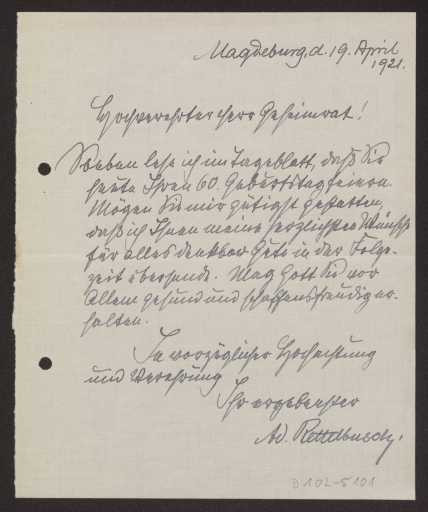 Magdeburg, d. 19. April
1921.
Hochverehrter Herr Geheimrat!
Soeben lese ich im Tageblatt, daß Sie
heute Ihren 60. Geburtstag feiern.
Mögen Sie mir gütigst gestatten,
daß ich Ihnen meine herzlichsten Wünsche
für alles denkbar Gute in der Folge-
zeit übersende. Mag Gott Sie vor
allem gesund und schaffensfreudig er-
halten.
In vorzüglicher Hochachtung
und Verehrung
Ihr ergebenster
Ad. Rettelbusch.
D 102-5101